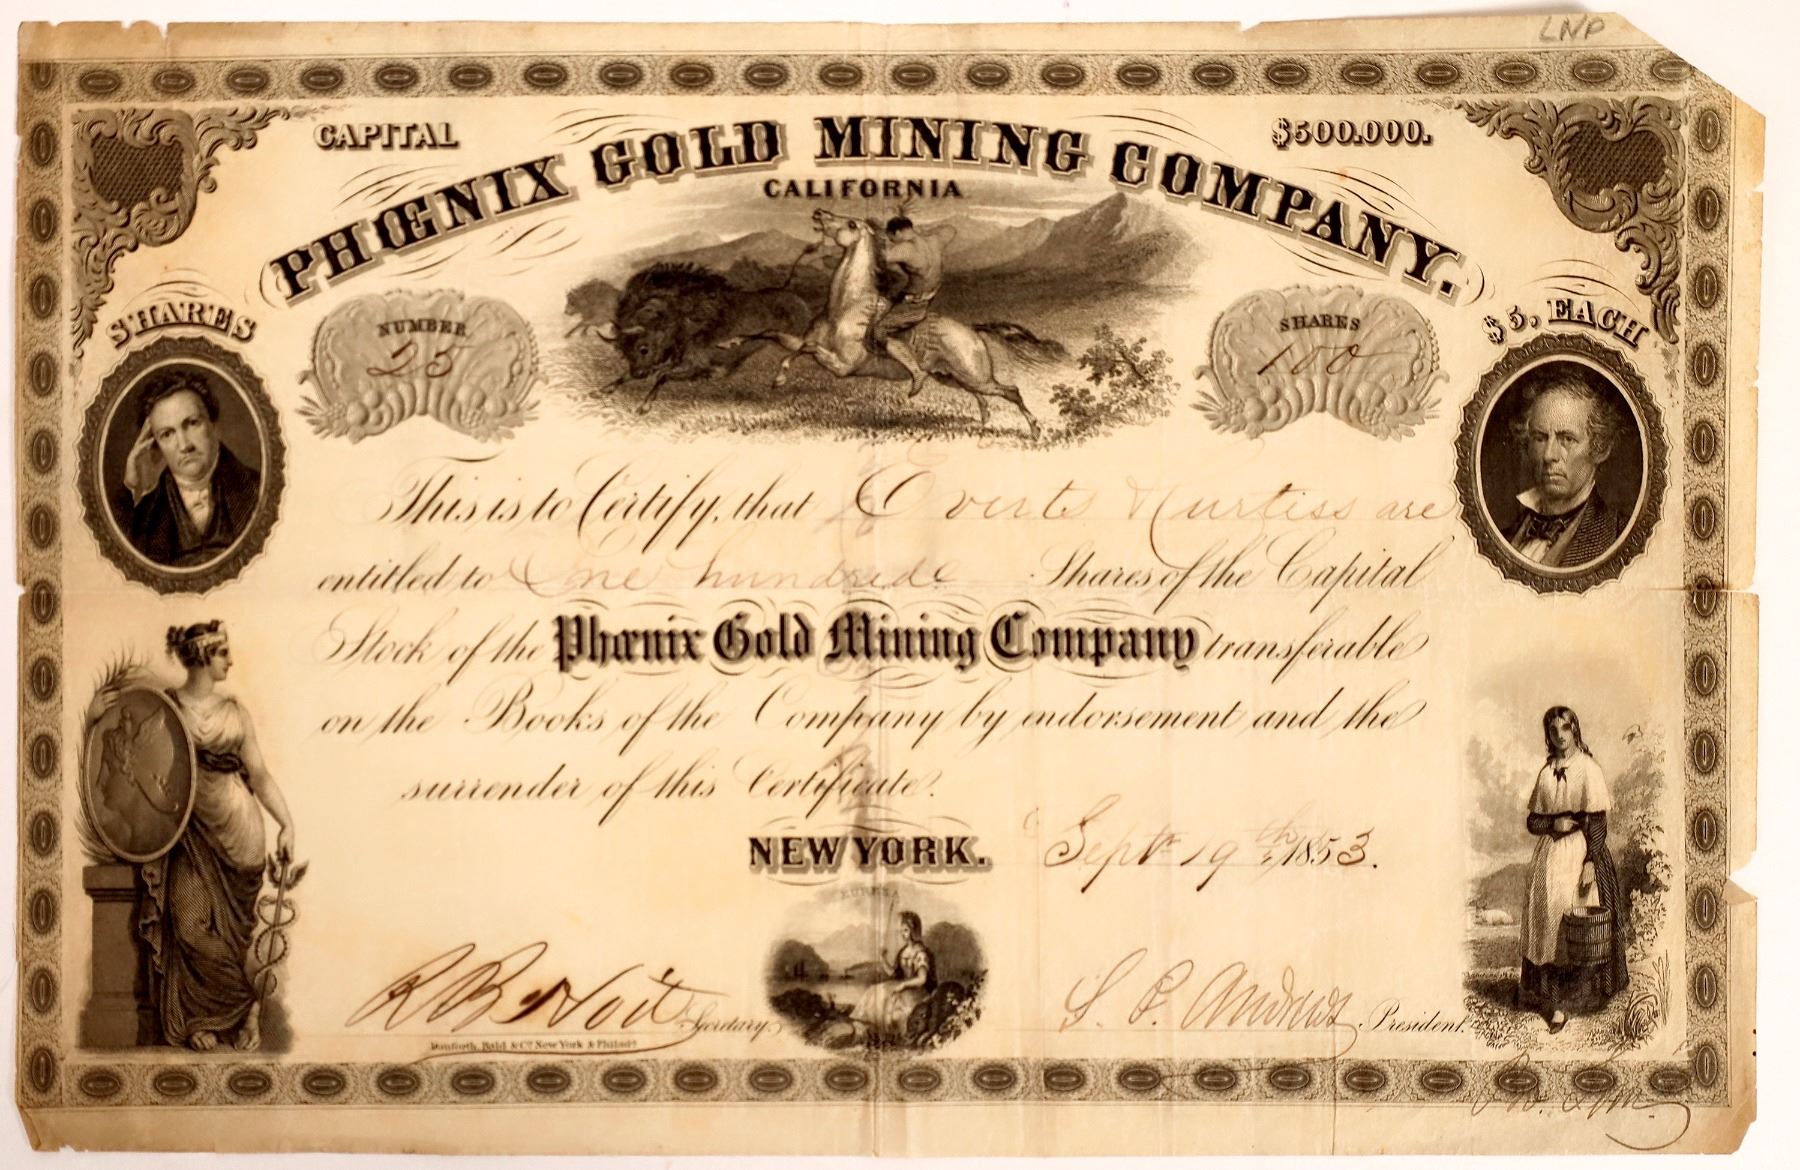 LNP
CAPITAL
$500.000.
PHŒNIX GOLD MINING COMPANY.
CALIFORNIA
SHARES
$5, EACH
NUMBER
25
SHARES
100
This is to Certify, that Everts & Curtiss are
entitled to One hundrede Shares of the Capital
Stock of the Phœnix Gold Mining Company transferable
on the Books of the Company by endorsement and the
surrender of this Certificate.
NEW YORK. Sept 19th 1853.
EUREKA
R B Hoit Secretary.
S. P. Andrews President.
Danforth, Bald & Co. New York & Philada.